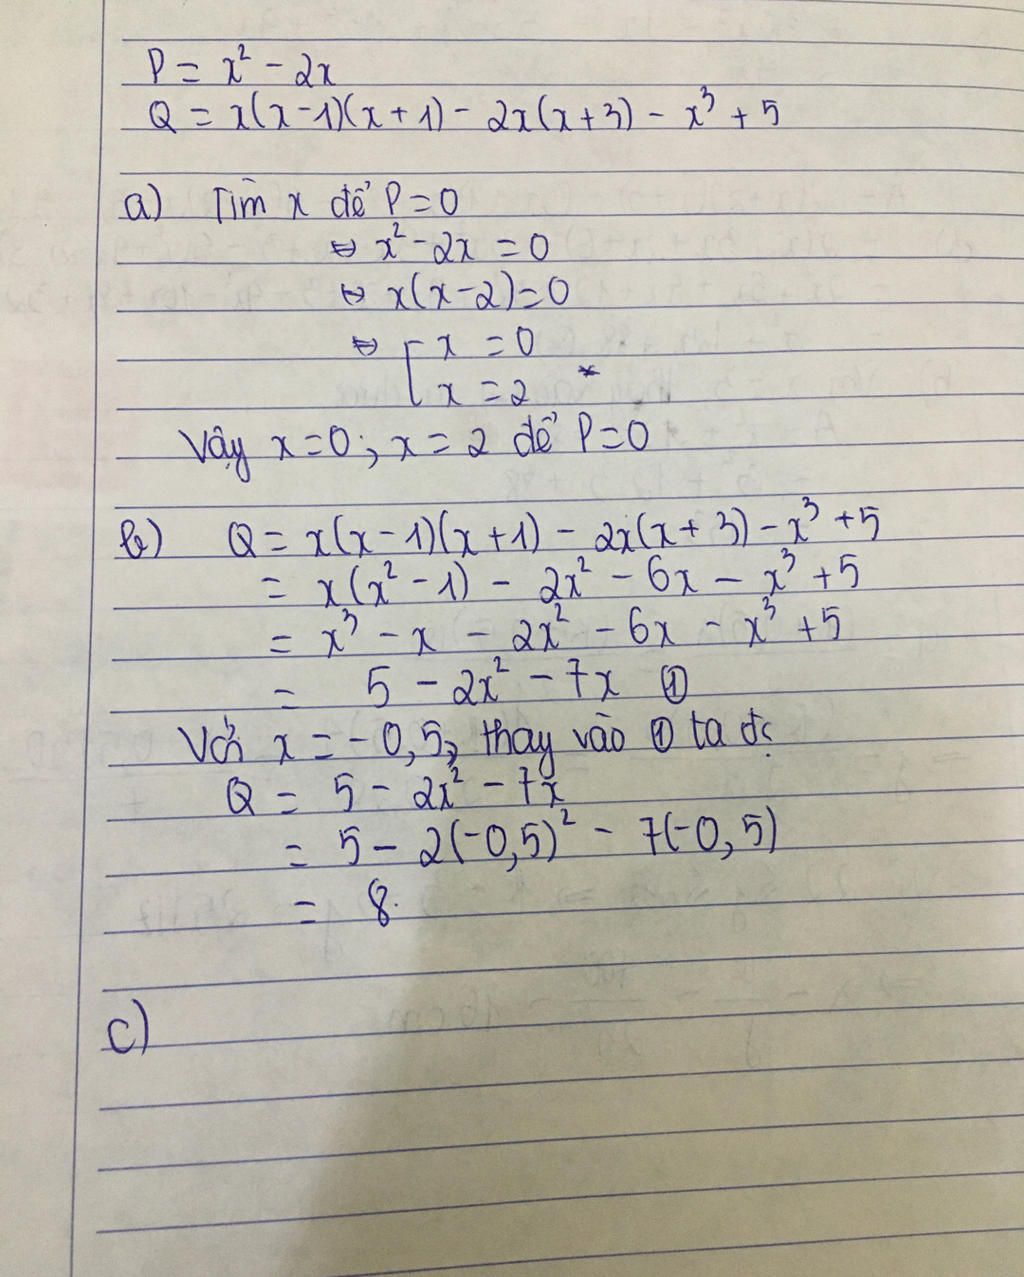 P = x² - 2x
Q = x(x-1)(x+1) - 2x(x+3) - x³ + 5
a) Tìm x để P=0
⇔ x² - 2x = 0
⇔ x(x-2)=0
⇔ [ x = 0
x = 2 *
Vậy x=0; x = 2 để P=0
b) Q = x(x-1)(x+1) - 2x(x+3) - x³ + 5
= x(x² - 1) - 2x² - 6x - x³ + 5
= x³ - x - 2x² - 6x - x³ + 5
= 5 - 2x² - 7x ①
Với x = -0,5, thay vào ① ta đc
Q = 5 - 2x² - 7x
= 5 - 2(-0,5)² - 7(-0,5)
= 8.
c)